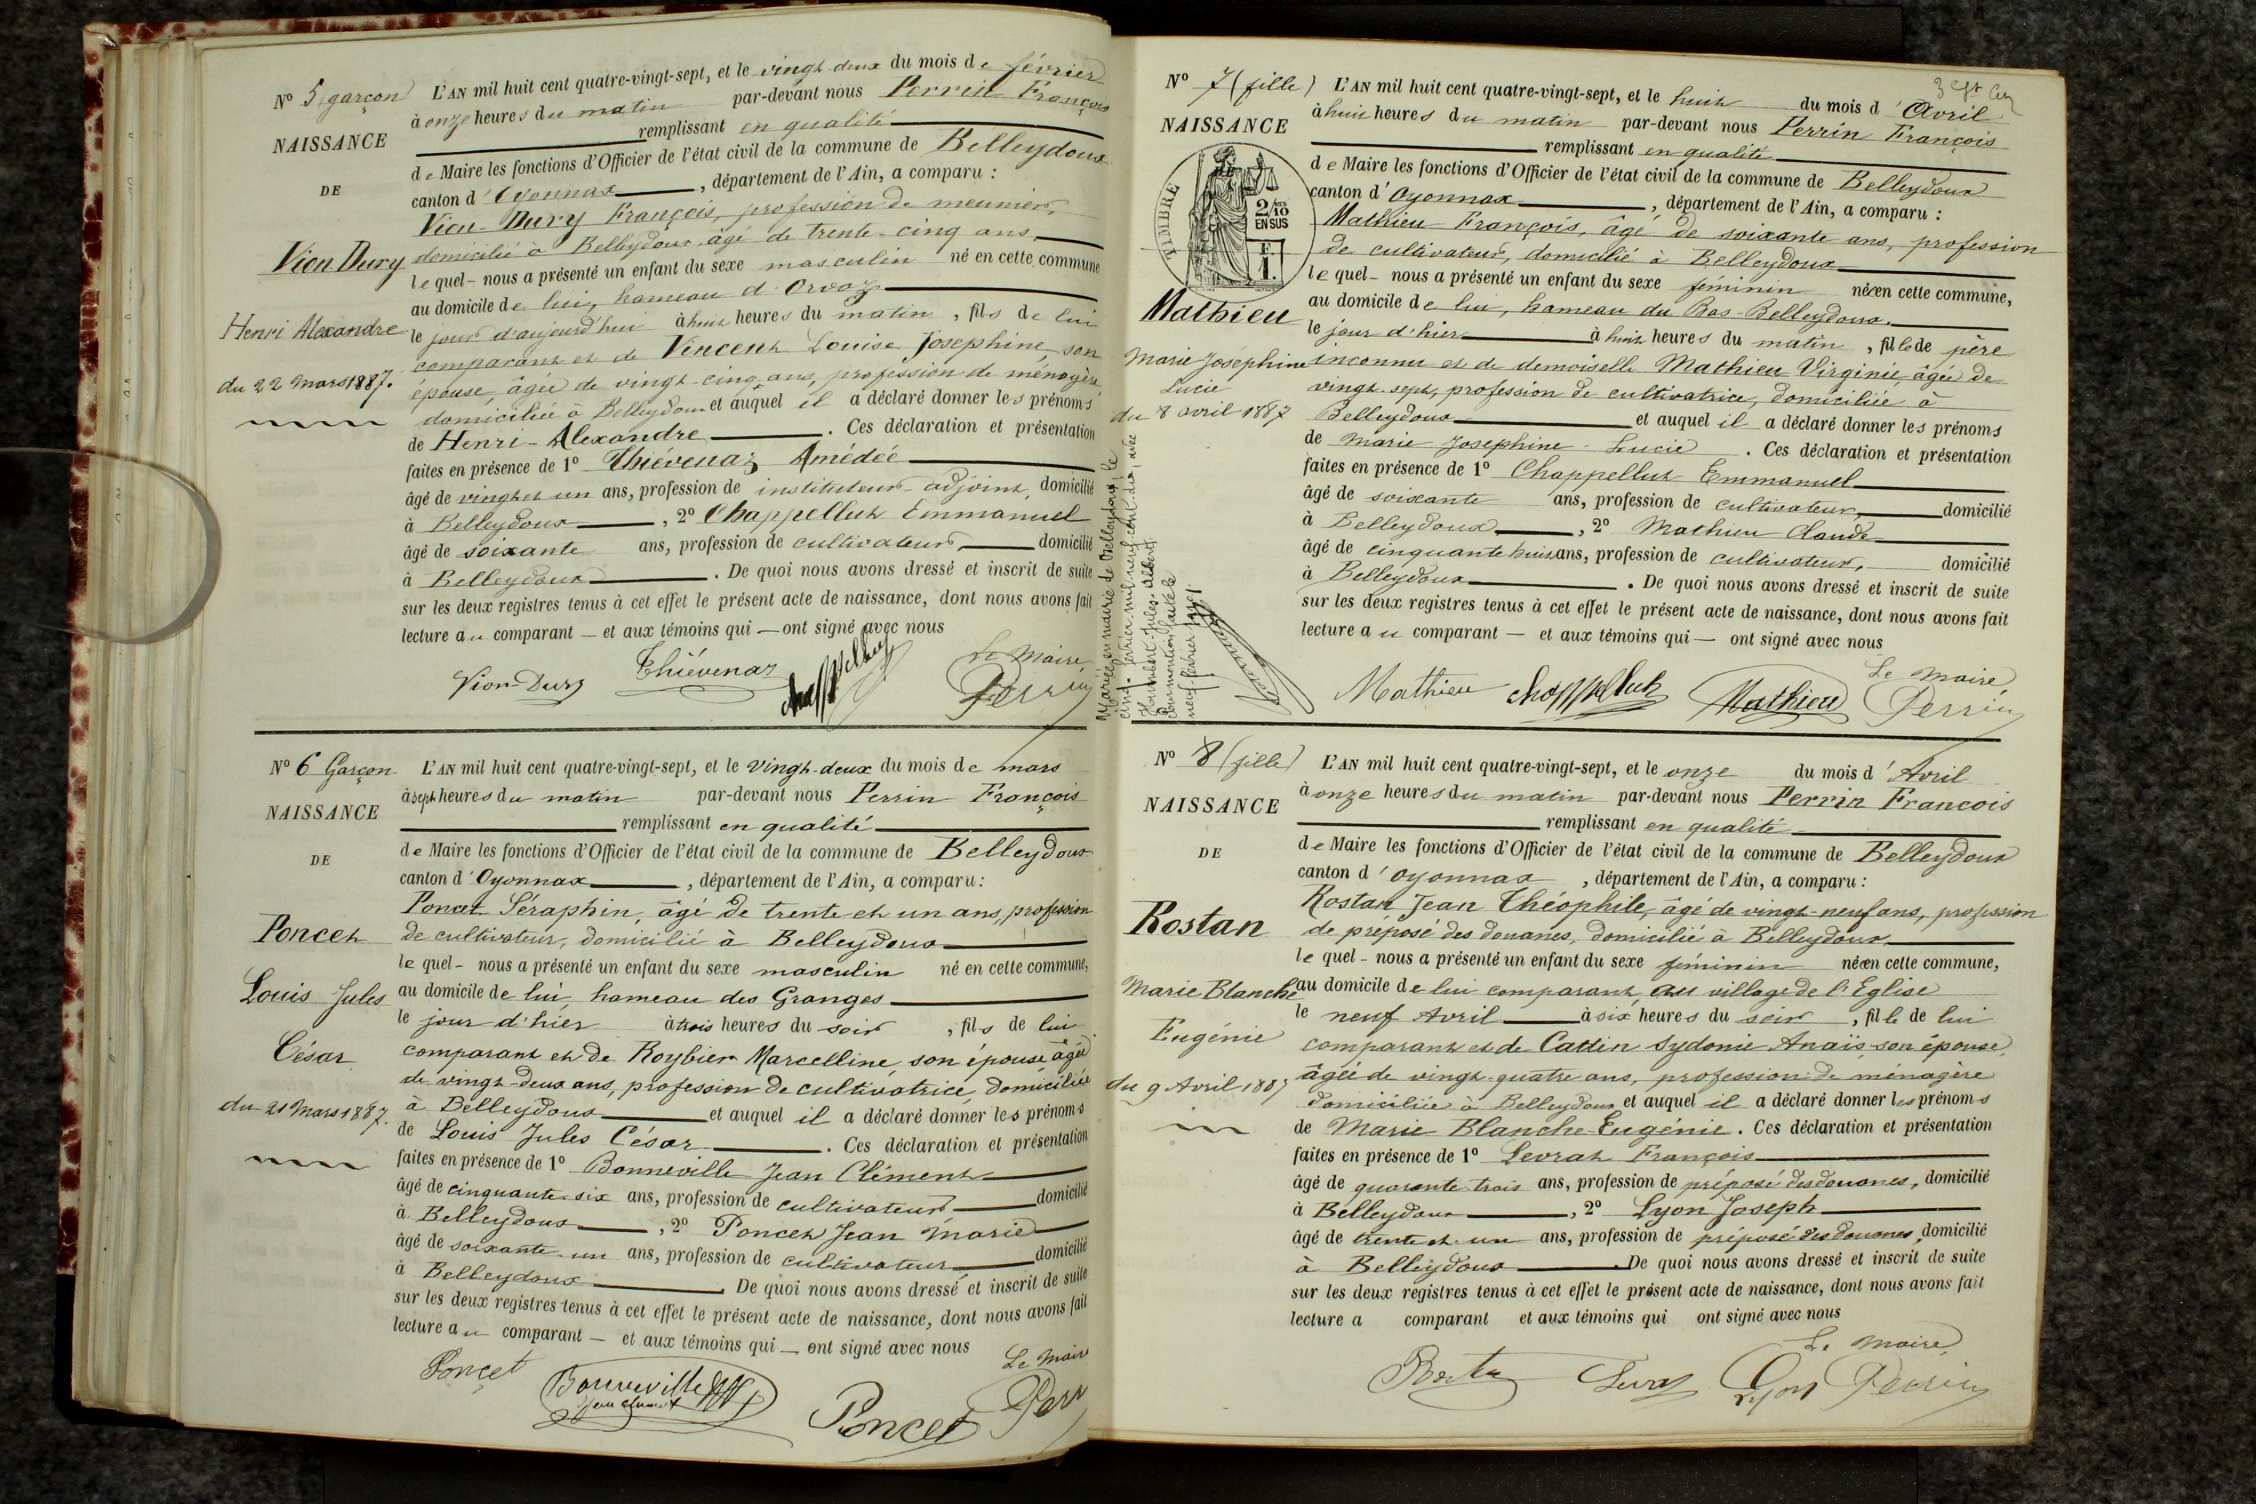 N° 5 garçon
NAISSANCE
DE
Vion Dury
Henri Alexandre
du 22 Mars 1887.
L'AN mil huit cent quatre-vingt-sept, et le vingt deux du mois de février
à onze heures du matin par-devant nous Perrin François
remplissant en qualité
de Maire les fonctions d'Officier de l'état civil de la commune de Belleydoux
canton d'Oyonnax, département de l'Ain, a comparu :
Vion-Dury François, profession de meunier,
domicilié à Belleydoux âgé de trente-cinq ans,
lequel - nous a présenté un enfant du sexe masculin né en cette commune
au domicile de lui, hameau d'Orvaz
le jour d'aujourd'hui à huit heures du matin, fils de lui
comparant et de Vincent Louise Josephine, son
épouse, âgée de vingt-cinq ans, profession de ménagère
domiciliée à Belleydoux et auquel il a déclaré donner les prénoms
de Henri-Alexandre. Ces déclaration et présentation
faites en présence de 1° Thiévenaz Amédée
âgé de vingt et un ans, profession de instituteur-adjoint, domicilié
à Belleydoux, 2° Chappelluz Emmanuel
âgé de soixante ans, profession de cultivateur, domicilié
à Belleydoux. De quoi nous avons dressé et inscrit de suite
sur les deux registres tenus à cet effet le présent acte de naissance, dont nous avons fait
lecture au comparant — et aux témoins qui — ont signé avec nous
Le Maire,
Vion-Dury Thiévenaz Chappelluz Perrin
N° 6 Garçon
NAISSANCE
DE
Poncet
Louis Jules
César
du 21 Mars 1887.
L'AN mil huit cent quatre-vingt-sept, et le vingt-deux du mois de mars
à sept heures du matin par-devant nous Perrin François
remplissant en qualité
de Maire les fonctions d'Officier de l'état civil de la commune de Belleydoux
canton d'Oyonnax, département de l'Ain, a comparu :
Poncet Séraphin, âgé de trente et un ans, profession
de cultivateur, domicilié à Belleydoux
lequel - nous a présenté un enfant du sexe masculin né en cette commune,
au domicile de lui, hameau des Granges
le jour d'hier à trois heures du soir, fils de lui
comparant et de Roybier Marcelline, son épouse, âgée
de vingt-deux ans, profession de cultivatrice, domiciliée
à Belleydoux et auquel il a déclaré donner les prénoms
de Louis Jules César. Ces déclaration et présentation
faites en présence de 1° Bonneville Jean Clément
âgé de cinquante-six ans, profession de cultivateur domicilié
à Belleydoux, 2° Poncet Jean Marie
âgé de soixante-un ans, profession de cultivateur domicilié
à Belleydoux. De quoi nous avons dressé et inscrit de suite
sur les deux registres tenus à cet effet le présent acte de naissance, dont nous avons fait
lecture au comparant — et aux témoins qui — ont signé avec nous
Le Maire
Poncet Bonneville Jean Clément Poncet Perr
N° 7 (fille)
NAISSANCE
TIMBRE
2/10 EN SUS
F. 1.
Mathieu
Marie Josephine
Lucie
du 8 avril 1887
Mariée en mairie de Belleydoux, le
cinq février mil neuf cent dix, avec
Humbert Jules
Dont mention faite le
neuf février 1910.
L'AN mil huit cent quatre-vingt-sept, et le huit du mois d'Avril
à huit heures du matin par-devant nous Perrin François
remplissant en qualité
de Maire les fonctions d'Officier de l'état civil de la commune de Belleydoux
canton d'Oyonnax, département de l'Ain, a comparu :
Mathieu François, âgé de soixante ans, profession
de cultivateur, domicilié à Belleydoux
lequel - nous a présenté un enfant du sexe féminin née en cette commune,
au domicile de lui, hameau du Bas-Belleydoux.
le jour d'hier à huit heures du matin, fille de père
inconnu et de demoiselle Mathieu Virginie, âgée de
vingt-sept, profession de cultivatrice, domiciliée à
Belleydoux et auquel il a déclaré donner les prénoms
de Marie Josephine Lucie. Ces déclaration et présentation
faites en présence de 1° Chappelluz Emmanuel
âgé de soixante ans, profession de cultivateur, domicilié
à Belleydoux, 2° Mathieu Claude
âgé de cinquante huit ans, profession de cultivateur, domicilié
à Belleydoux. De quoi nous avons dressé et inscrit de suite
sur les deux registres tenus à cet effet le présent acte de naissance, dont nous avons fait
lecture au comparant — et aux témoins qui — ont signé avec nous
Le Maire
Mathieu Chappelluz Mathieu Perrin
N° 8 (fille)
NAISSANCE
DE
Rostan
Marie Blanche
Eugénie
du 9 Avril 1887
L'AN mil huit cent quatre-vingt-sept, et le onze du mois d'Avril
à onze heures du matin par-devant nous Perrin Francois
remplissant en qualité
de Maire les fonctions d'Officier de l'état civil de la commune de Belleydoux
canton d'Oyonnax, département de l'Ain, a comparu :
Rostan Jean Théophile, âgé de vingt-neuf ans, profession
de préposé des douanes, domicilié à Belleydoux
lequel - nous a présenté un enfant du sexe féminin née en cette commune,
au domicile de lui comparant, au village de l'Eglise
le neuf Avril à six heures du soir, fille de lui
comparant et de Cattin Sydonie Anaïs son épouse,
âgée de vingt-quatre ans, profession de ménagère
domiciliée à Belleydoux et auquel il a déclaré donner les prénoms
de Marie Blanche-Eugénie. Ces déclaration et présentation
faites en présence de 1° Levrat François
âgé de quarante-trois ans, profession de préposé des douanes, domicilié
à Belleydoux, 2° Lyon Joseph
âgé de trente et un ans, profession de préposé des douanes, domicilié
à Belleydoux. De quoi nous avons dressé et inscrit de suite
sur les deux registres tenus à cet effet le présent acte de naissance, dont nous avons fait
lecture a comparant et aux témoins qui ont signé avec nous
Le Maire,
Rostan Levrat Lyon Perrin